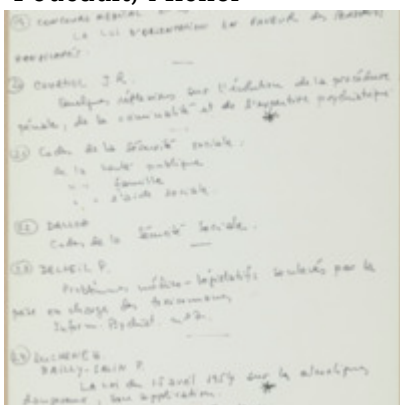 (19) CONCOURS MEDICAL
LA LOI D'ORIENTATION EN FAVEUR des PERSONNES
HANDICAPÉES.
J.R.
Quelques réflexions sur l'évolution de la procédure
pénale, de la criminalité et de l'expertise psychiatrique
(21) Codes de la Sécurité sociale.
de la santé publique
" " famille
" " d'aide sociale.
(22) DALLOZ
Codes de la Sécurité Sociale.
P.
Problèmes médico-législatifs soulevés par la
prise en charge des toxicomanes
Inform. Psychiat.
BAILLY-SALIN P.
La loi du 15 avril 1954 sur les alcooliques
dangereux, son application.